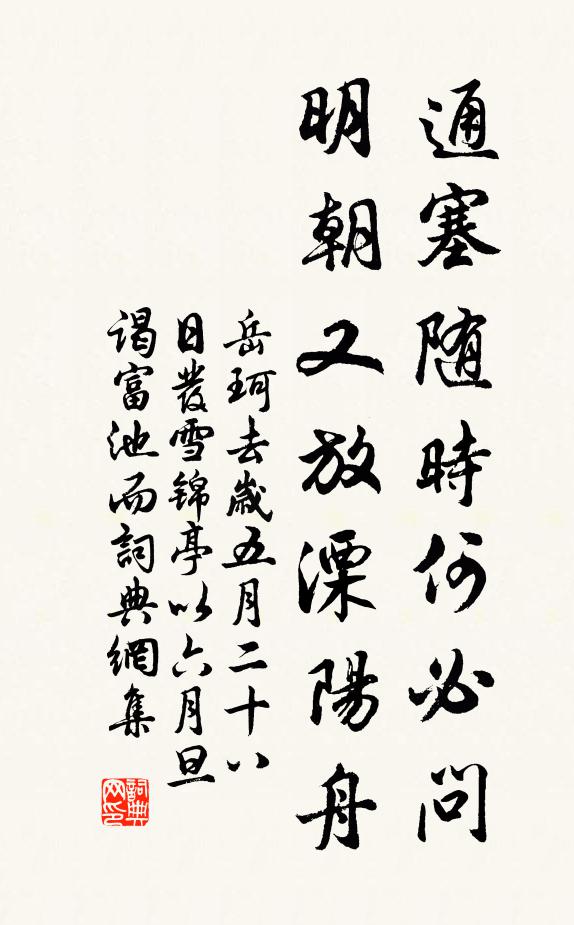 通塞随時何必問
明朝又放溧陽舟
岳珂去歲五月二十八
日發雪錦亭以六月旦
謁富池而詞典網集
詞典
网印